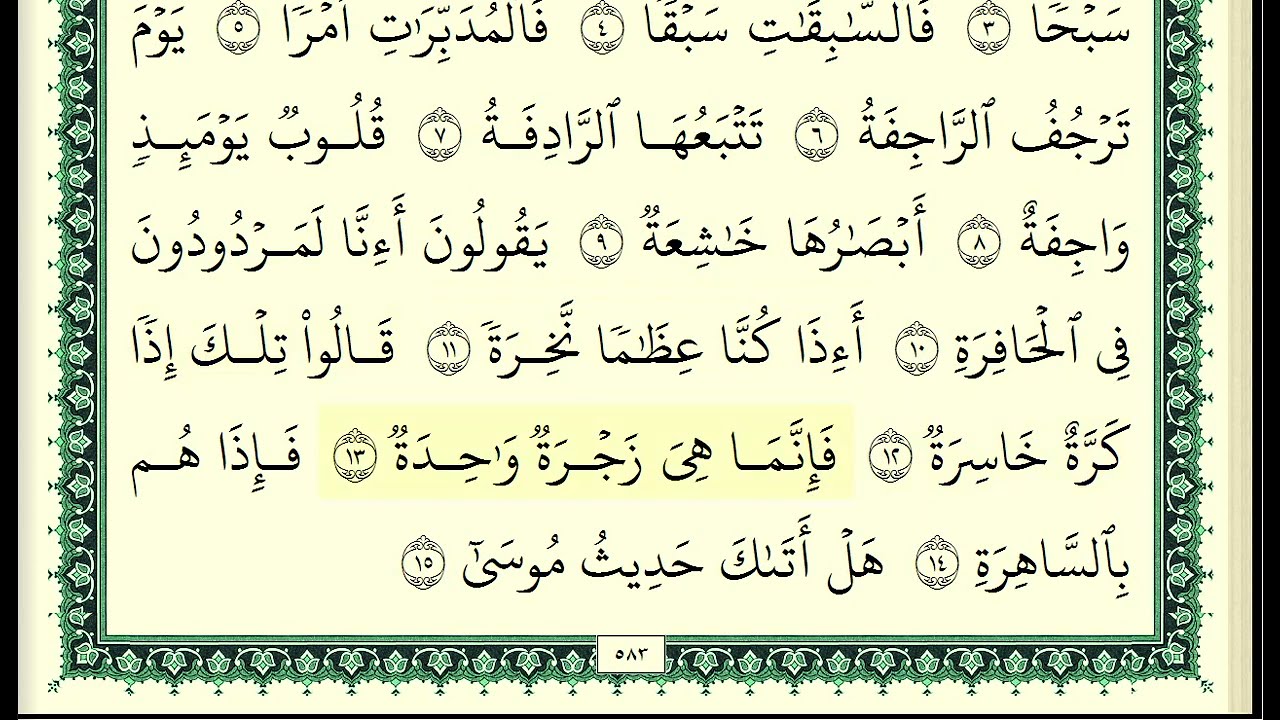 سَبۡحٗا ٣ فَٱلسَّٰبِقَٰتِ سَبۡقٗا ٤ فَٱلۡمُدَبِّرَٰتِ أَمۡرٗا ٥ يَوۡمَ
تَرۡجُفُ ٱلرَّاجِفَةُ ٦ تَتۡبَعُهَا ٱلرَّادِفَةُ ٧ قُلُوبٞ يَوۡمَئِذٖ
وَاجِفَةٌ ٨ أَبۡصَٰرُهَا خَٰشِعَةٞ ٩ يَقُولُونَ أَءِنَّا لَمَرۡدُودُونَ
فِي ٱلۡحَافِرَةِ ١٠ أَءِذَا كُنَّا عِظَٰمٗا نَّخِرَةٗ ١١ قَالُواْ تِلۡكَ إِذٗا
كَرَّةٌ خَاسِرَةٞ ١٢ فَإِنَّمَا هِيَ زَجۡرَةٞ وَٰحِدَةٞ ١٣ فَإِذَا هُم
بِٱلسَّاهِرَةِ ١٤ هَلۡ أَتَىٰكَ حَدِيثُ مُوسَىٰٓ ١٥
٥٨٣